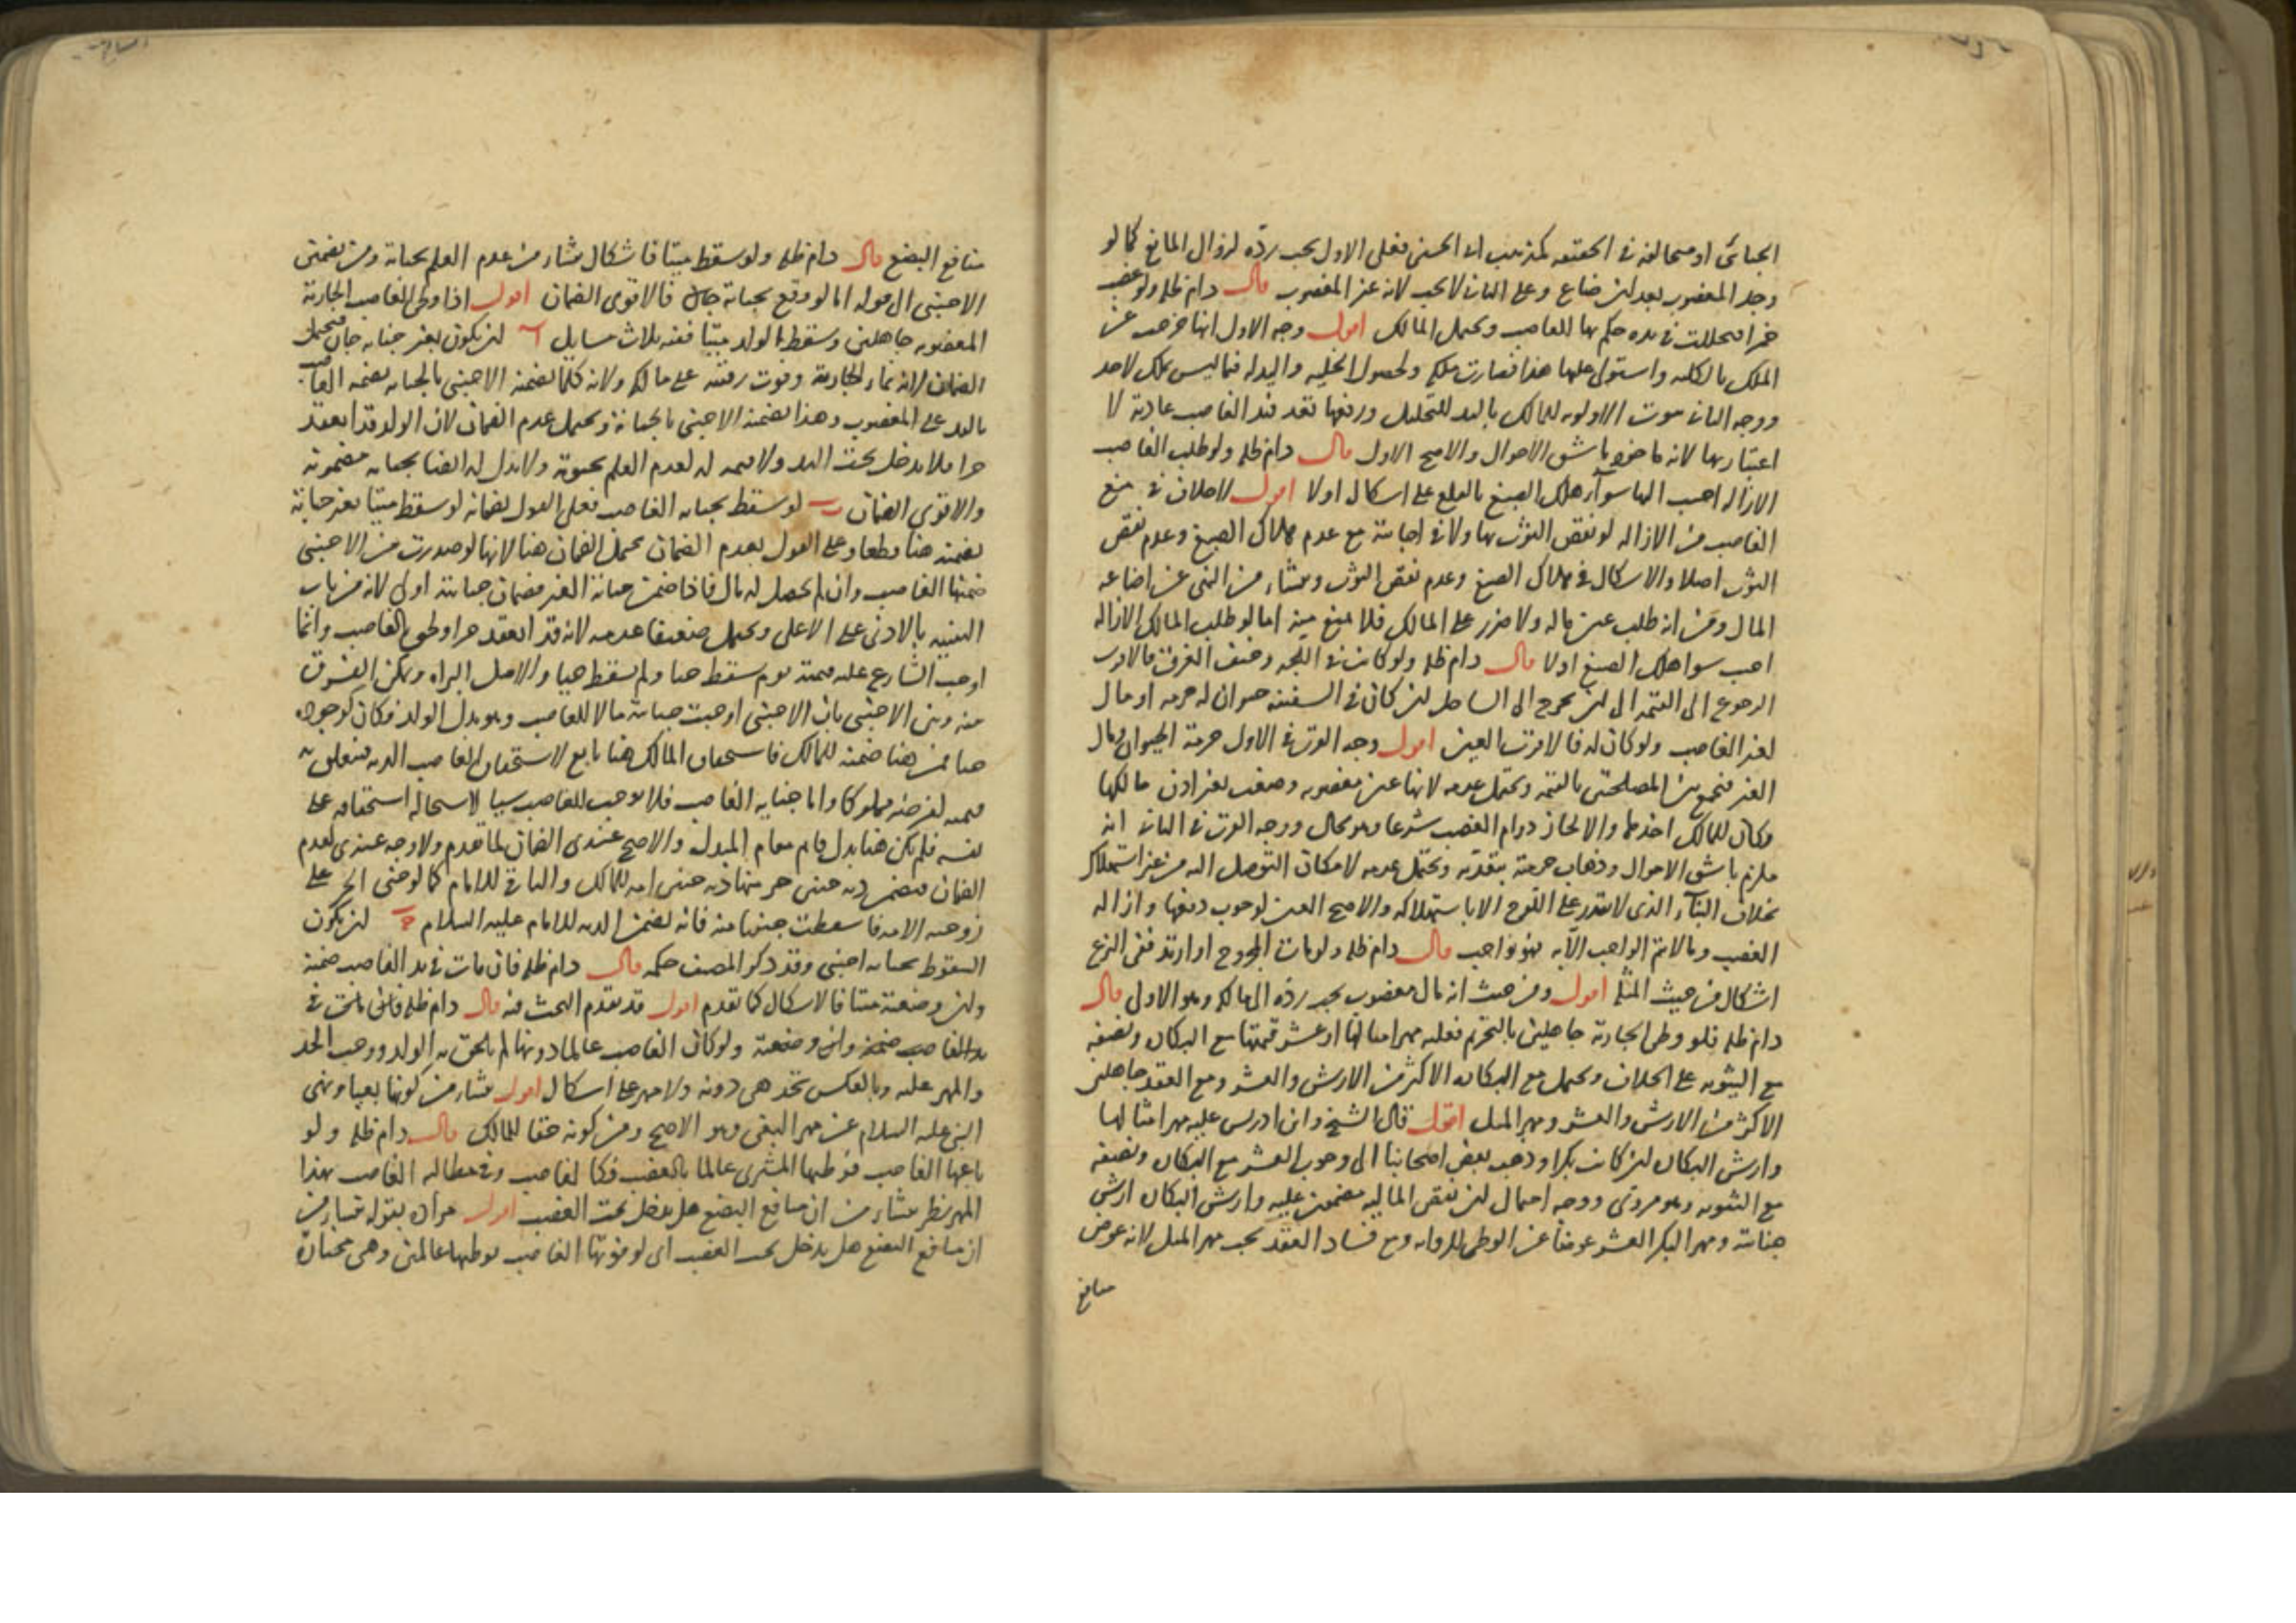 الجبائي او مخالفة في الحقيقة كمذهب ابي الحسين فعلى الاول يجب رده لزوال المانع كما لو
وجد المغصوب بعد ان ضاع وعلى الثاني لا يجب لانه غير المغصوب قال دام ظله ولو غصب
خمرا فتخللت في يده حكم بها للغاصب ويحتمل المالك اقول وجه الاول انها خرجت عن
الملك بالكلية واستولى عليها هذا فصارت ملكه ولحصول الخلية واليد له فيما ليس بملك لاحد
ووجه الثاني ثبوت الاولوية للمالك باليد للتخليل ورفعها تعد فيد الغاصب عادية لا
اعتبار بها لانه ماخوذ باشق الاحوال والاصح الاول قال دام ظله ولو طلب الغاصب
الازالة اجيب اليها سوآء هلك الصبغ بالقلع على اشكال اولا اقول لا خلاف في منع
الغاصب من الازالة لو نقص الثوب بها ولا في اجابته مع عدم هلاك الصبغ وعدم نقص
الثوب اصلا والاشكال في هلاك الصبغ وعدم نقص الثوب ومنشاء من النهي عن اضاعة
المال ومن انه طلب عين ماله ولا ضرر على المالك فلا منع منه اما لو طلب المالك الازالة
اجيب سواء هلك الصبغ اولا قال دام ظله ولو كانت في اللجة وخيف الغرق فالاقرب
الرجوع الى القيمة الى ان يخرج الى الساحل ان كان في السفينة حيوان له حرمة او مال
لغير الغاصب ولو كان له فالاقرب العين اقول وجه القرب في الاول حرمة الحيوان ومال
الغير فنجمع بين المصلحتين بالقيمة ويحتمل عدمه لانها عين مغصوبة وضعت بغير اذن مالكها
فكان للمالك اخذها والا لجاز دوام الغصب شرعا وهو محال ووجه القرب في الثاني انه
ملزم باشق الاحوال وذهاب حرمة بتعديه ويحتمل عدمه لامكان التوصل اليه من غير استهلاك
بخلاف البنآء الذي لا يقدر على اللوح الا باستهلاكه والاصح العين لوجوب دفعها وازالة
الغصب وما لا يتم الواجب الا به فهو واجب قال دام ظله ولو مات المجروح او ارتد ففي النزع
اشكال من حيث المثلة اقول ومن حيث انه مال مغصوب يجب رده الى مالكه وهو الاولى قال
دام ظله فلو وطى الجارية جاهلين بالتحريم فعليه مهر امثالها او عشر قيمتها مع البكارة ونصفه
مع الثيوبة على الخلاف ويحتمل مع البكارة الاكثر من الارش والعشر ومع العقد جاهلين
الاكثر من الارش والعشر ومهر المثل اقول قال الشيخ وابن ادريس عليه مهر امثالها
وارش البكارة ان كانت بكرا وذهب بعض اصحابنا الى وجوب العشر مع البكارة ونصفه
مع الثيوبة وهو مروي ووجه احتمال ان نقص المالية مضمون عليه وارش البكارة ارش
جناية ومهر البكر العشر عوضا عن الوطى للرواية ومع فساد العقد يجب مهر المثل لانه عوض
منافع
منافع البضع قال دام ظله ولو سقط ميتا فاشكال منشاء من عدم العلم بحياته ومن تضمين
الاجنبي الى قوله اما لو وقع بجناية جان فالاقوى الضمان اقول اذا وطى الغاصب الجارية
المغصوبة جاهلين وسقط الولد ميتا ففيه ثلاث مسايل آ ان يكون بغير جناية جان فيحتمل
الضمان لانه نماء الجارية وفوت رقيته على مالكه ولانه كلما يضمنه الاجنبي بالجناية يضمنه الغاصب
باليد على المغصوب وهذا يضمنه الاجنبي بالجناية ويحتمل عدم الضمان لان الولد قد انعقد
حرا فلا يدخل تحت اليد ولا قيمة له لعدم العلم بحيوته ولا بدل له ايضا بجناية مضمونة
والاقوى الضمان ب لو سقط بجناية الغاصب فعلى القول بضمانه لو سقط ميتا بغير جناية
يضمنه هنا قطعا وعلى القول بعدم الضمان يحتمل الضمان هنا لانها لو صدرت من الاجنبي
ضمنها الغاصب وان لم يحصل له مال فاذا ضمن جناية الغير فضمان جنايته اولى لانه من باب
التنبيه بالادنى على الاعلى ويحتمل ضعيفا عدمه لانه قد انعقد حرا ولحق بالغاصب وانما
اوجب الشارع عليه قيمته يوم سقط حيا ولم يسقط حيا والاصل البراءة ويمكن الفرق
بينه وبين الاجنبي بان الاجنبي اوجبت جنايته مالا للغاصب وهو بدل الولد فكان كوجوده
حيا فمن هنا ضمنه للمالك فاستحقاق المالك هنا تابع لاستحقاق الغاصب الدية فيتعلق به
قيمته لفرضه مملوكا واما جناية الغاصب فلا توجب للغاصب شيئا لاستحالة استحقاقه على
نفسه فلم يكن هنا بدل قايم مقام المبدل والاصح عندي الضمان لما تقدم ولا وجه عندي لعدم
الضمان فيضمن دية جنين حر منها دية جنين امة للمالك والباقي للامام كما لو جنى الحر على
زوجته الامة فاسقطت جنينها منه فانه يضمن الدية للامام عليه السلام ج ان يكون
السقوط بجناية اجنبي وقد ذكر المصنف حكمه قال دام ظله فان مات في يد الغاصب ضمنه
وان وضعته ميتا فالاشكال كما تقدم اقول قد تقدم البحث فيه قال دام ظله فان ماتت في
يد الغاصب ضمنه وان وضعته ولو كان الغاصب عالما دونها لم يلحق به الولد ووجب الحد
والمهر عليه وبالعكس تحد هي دونه ولا مهر على اشكال اقول منشاء من كونها بغيا ونهى
النبي عليه السلام عن مهر البغي وهو الاصح ومن كونه حقا للمالك قال دام ظله ولو
باعها الغاصب فوطيها المشتري عالما بالغصب فكالغاصب وفي مطالبة الغاصب بهذا
المهر نظر ينشاء من ان منافع البضع هل يدخل تحت الغصب اقول مراده بقوله ينشاء من
ان منافع البضع هل يدخل تحت الغصب اي لو فوتها الغاصب بوطيها عالمين وهي مختارة